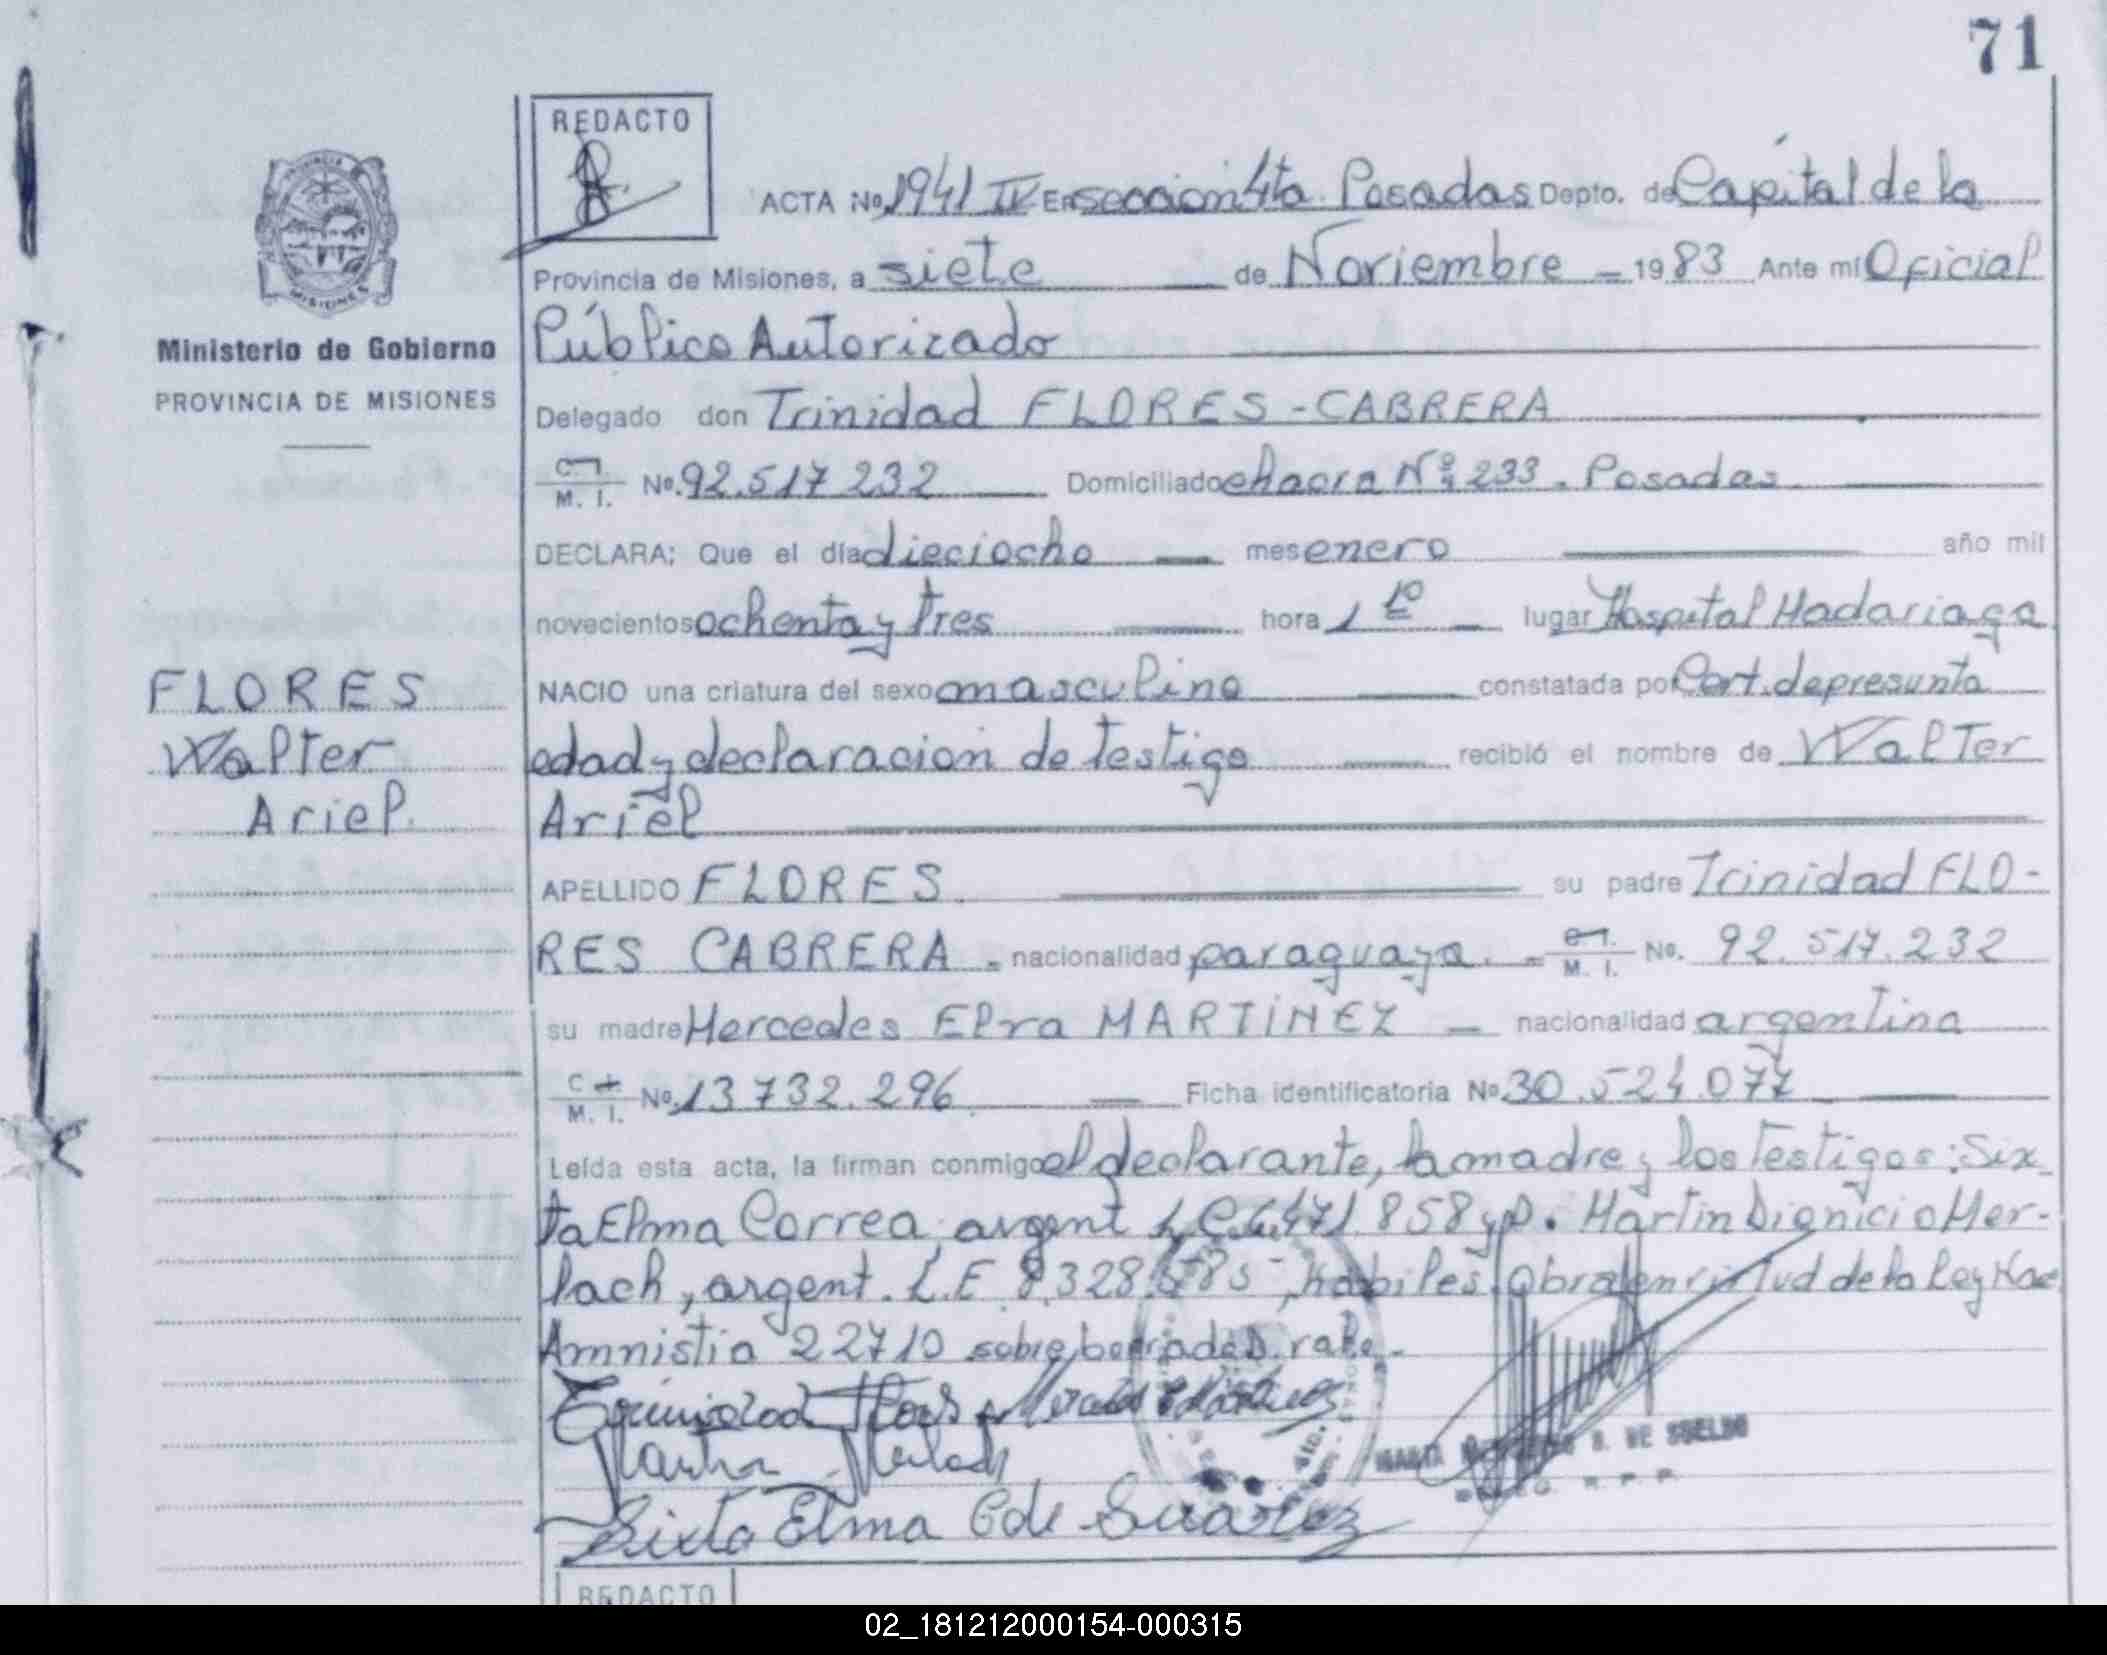 71
REDACTO
ACTA No. 1941 IV En seccion 4ta. Posadas Depto. de Capital de la
Provincia de Misiones, a siete de Noviembre 1983 Ante mi Oficial
Público Autorizado
Ministerio de Gobierno
PROVINCIA DE MISIONES
Delegado don Trinidad FLORES-CABRERA
C. I. M. I. No. 92.517 232 Domiciliado chacra Nº 233. Posadas
DECLARA: Que el día dieciocho mes enero año mil
novecientos ochenta y tres hora 1 lugar Hospital Madariaga
FLORES
Walter
Ariel.
NACIO una criatura del sexo masculino constatada por Cert. de presunta
edad y declaracion de testigo recibió el nombre de Walter
Ariel
APELLIDO FLORES. su padre Trinidad FLO-
RES CABRERA - nacionalidad paraguaya. M. I. No. 92.517.232
su madre Mercedes Elva MARTINEZ nacionalidad argentina
M. I. No. 13 732.296 Ficha identificatoria No. 30.524.077
Leída esta acta, la firman conmigo el declarante, la madre y los testigos: Six-
ta Elma Correa, argent L.C. 858 y D. Martin Dionicio Mer-
lach, argent. L.E 8.328. habiles. Obra en virtud de la Ley Nac
Amnistia 22710 sobre vale.
Martin Merlach
Sixta Elma C de Suarez
DE SUELDO
REDACTO
02_181212000154-000315